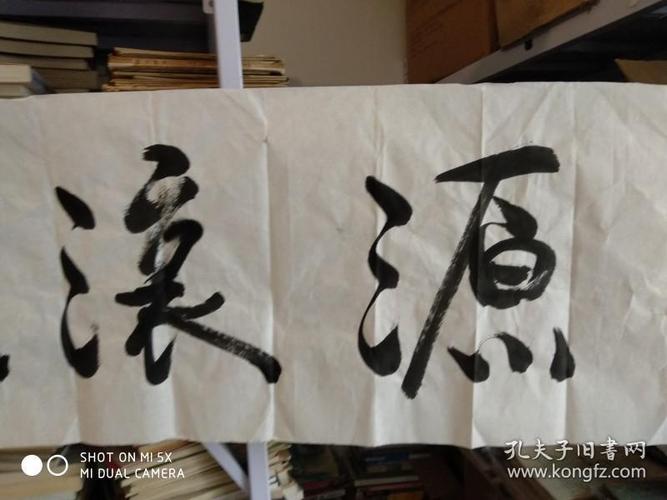 源滚
SHOT ON MI 5X
MI DUAL CAMERA
孔夫子旧书网
www.kongfz.com